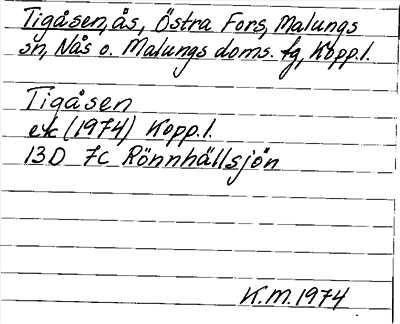 Tigåsen, ås, Östra Fors, Malungs
sn, Nås o. Malungs doms. fg, Kopp.l.
Tigåsen
ek (1974) Kopp.l.
13D 7c Rönnhällsjön
K.M. 1974